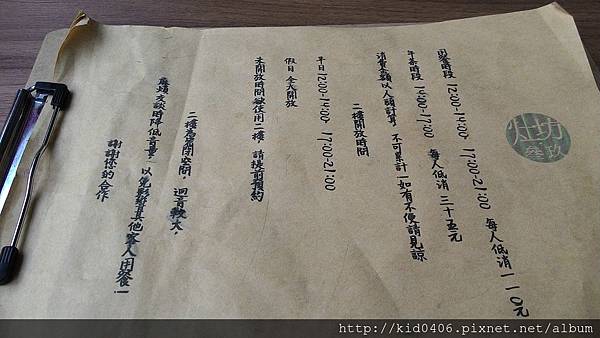 灶坊
叁玖
用餐時段 12:00-14:00、17:00-21:00 每人低消一一0元
午茶時段 14:00-17:00 每人低消 三十五元
消費金額以人頭計算，不可累計－如有不便請見諒
二樓開放時間
平日 12:00-14:00、17:00-21:00
假日 全天開放
未開放時間欲使用二樓，請提前預約
二樓為密閉空間，迴音較大，
麻煩交談時降低音量，以免影響其他客人用餐！
謝謝您的合作
http://kid0406.pixnet.net/album